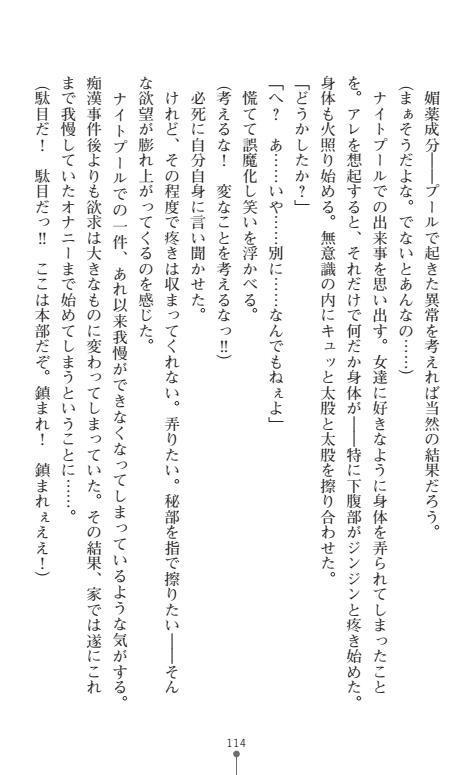 媚薬成分――プールで起きた異常を考えれば当然の結果だろう。
(まぁそうだよな。でないとあんなの……)
ナイトプールでの出来事を思い出す。女達に好きなように身体を弄られてしまったこと
を。アレを想起すると、それだけで何だか身体が――特に下腹部がジンジンと疼き始めた。
身体も火照り始める。無意識の内にキュッと太股と太股を擦り合わせた。
「どうかしたか?」
「へ? あ……いや……別に……なんでもねぇよ」
慌てて誤魔化し笑いを浮かべる。
(考えるな! 変なことを考えるなっ‼)
必死に自分自身に言い聞かせた。
けれど、その程度で疼きは収まってくれない。弄りたい。秘部を指で擦りたい――そん
な欲望が膨れ上がってくるのを感じた。
ナイトプールでの一件、あれ以来我慢ができなくなってしまっているような気がする。
痴漢事件後よりも欲求は大きなものに変わってしまっていた。その結果、家では遂にこれ
まで我慢していたオナニーまで始めてしまうということに……。
(駄目だ! 駄目だっ‼ ここは本部だぞ。鎮まれ! 鎮まれぇええ!)
114